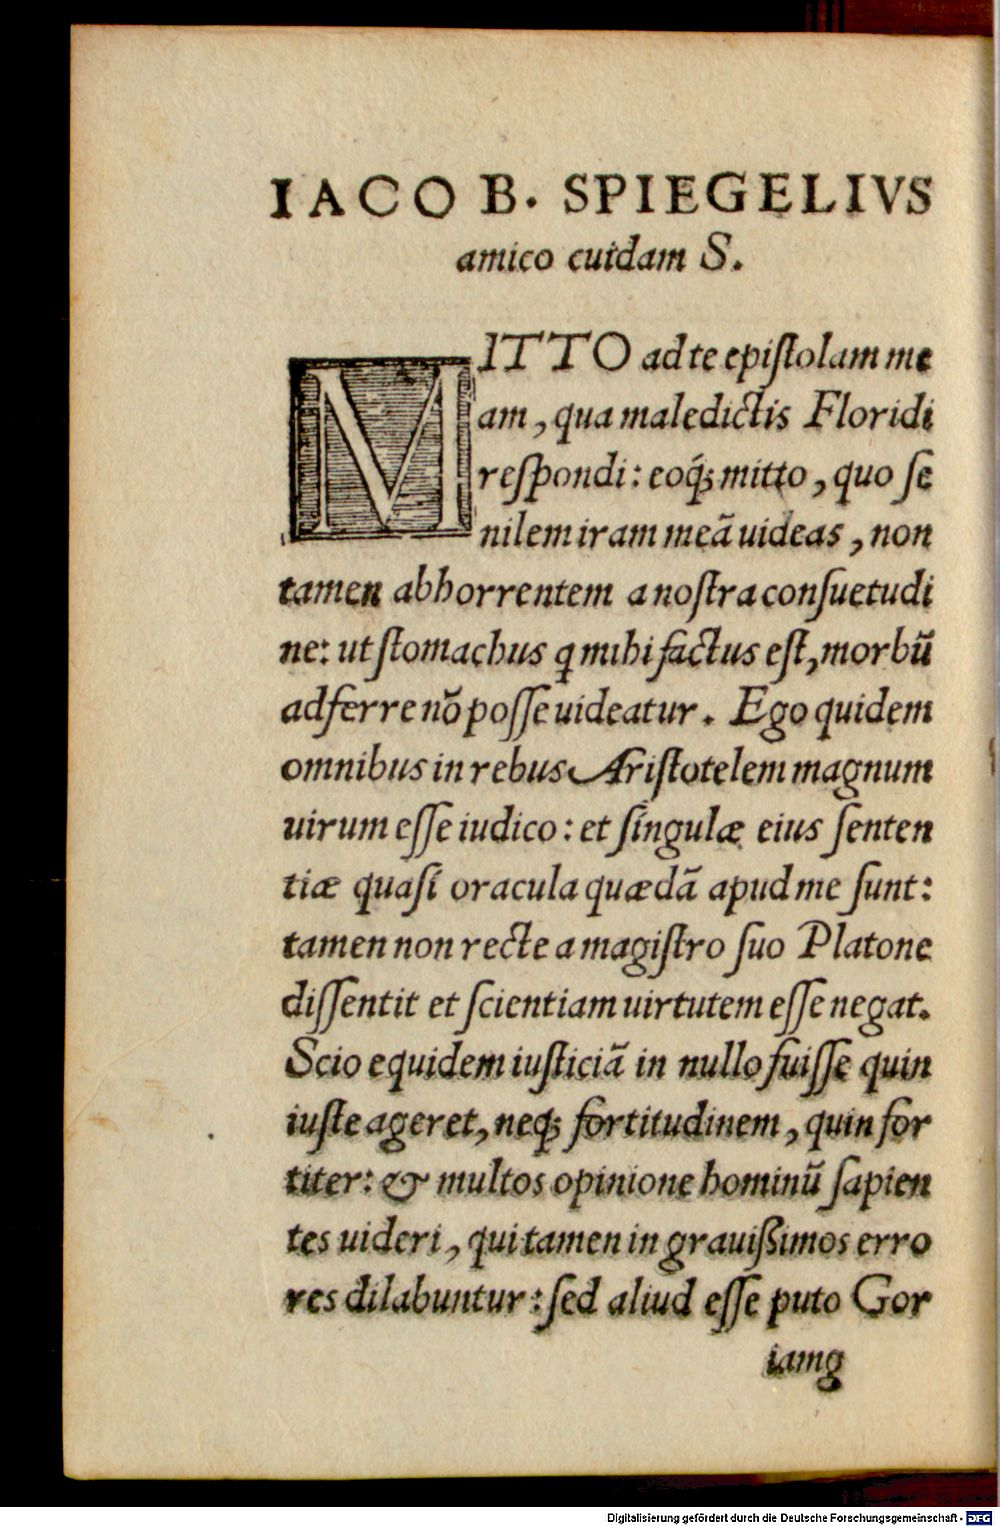 IACOB. SPIEGELIVS
amico cuidam S.
MITTO ad te epiſtolam me
am, qua maledictis Floridi
reſpondi: eoq́; mitto, quo ſe
nilem iram meã uideas, non
tamen abhorrentem a noſtra conſuetudi
ne: ut ſtomachus q mihi factus eſt, morbũ
adferre nõ poſſe uideatur. Ego quidem
omnibus in rebus Ariſtotelem magnum
uirum eſſe iudico: et ſingulæ eius ſenten
tiæ quaſi oracula quædã apud me ſunt:
tamen non recte a magiſtro ſuo Platone
diſſentit et ſcientiam uirtutem eſſe negat.
Scio equidem iuſticiã in nullo fuiſſe quin
iuſte ageret, neq; fortitudinem, quin for
titer: & multos opinione hominũ ſapien
tes uideri, qui tamen in grauißimos erro
res dilabuntur: ſed aliud eſſe puto Gor
iamg
Digitalisierung gefördert durch die Deutsche Forschungsgemeinschaft - DFG